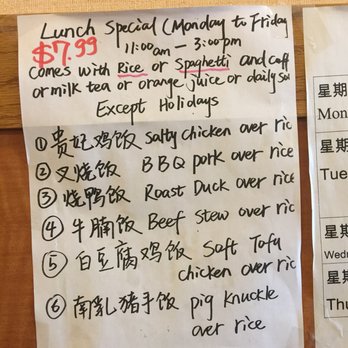 Lunch Special (Monday to Friday
$7.99 11:00am — 3:00pm
Comes with Rice or Spaghetti and coff
or milk tea or orange juice or daily Sou
Except Holidays
① 贵妃鸡饭 salty chicken over ric
② 叉烧饭 BBQ pork over rice
③ 烧鸭饭 Roast Duck over rice
④ 牛腩饭 Beef stew over ric
⑤ 白豆腐鸡饭 Soft Tofu
chicken over ric
⑥ 南乳猪手饭 pig knuckle
over rice
星期
Mon
星期
Tue
星期
Wedn
星期
Thu